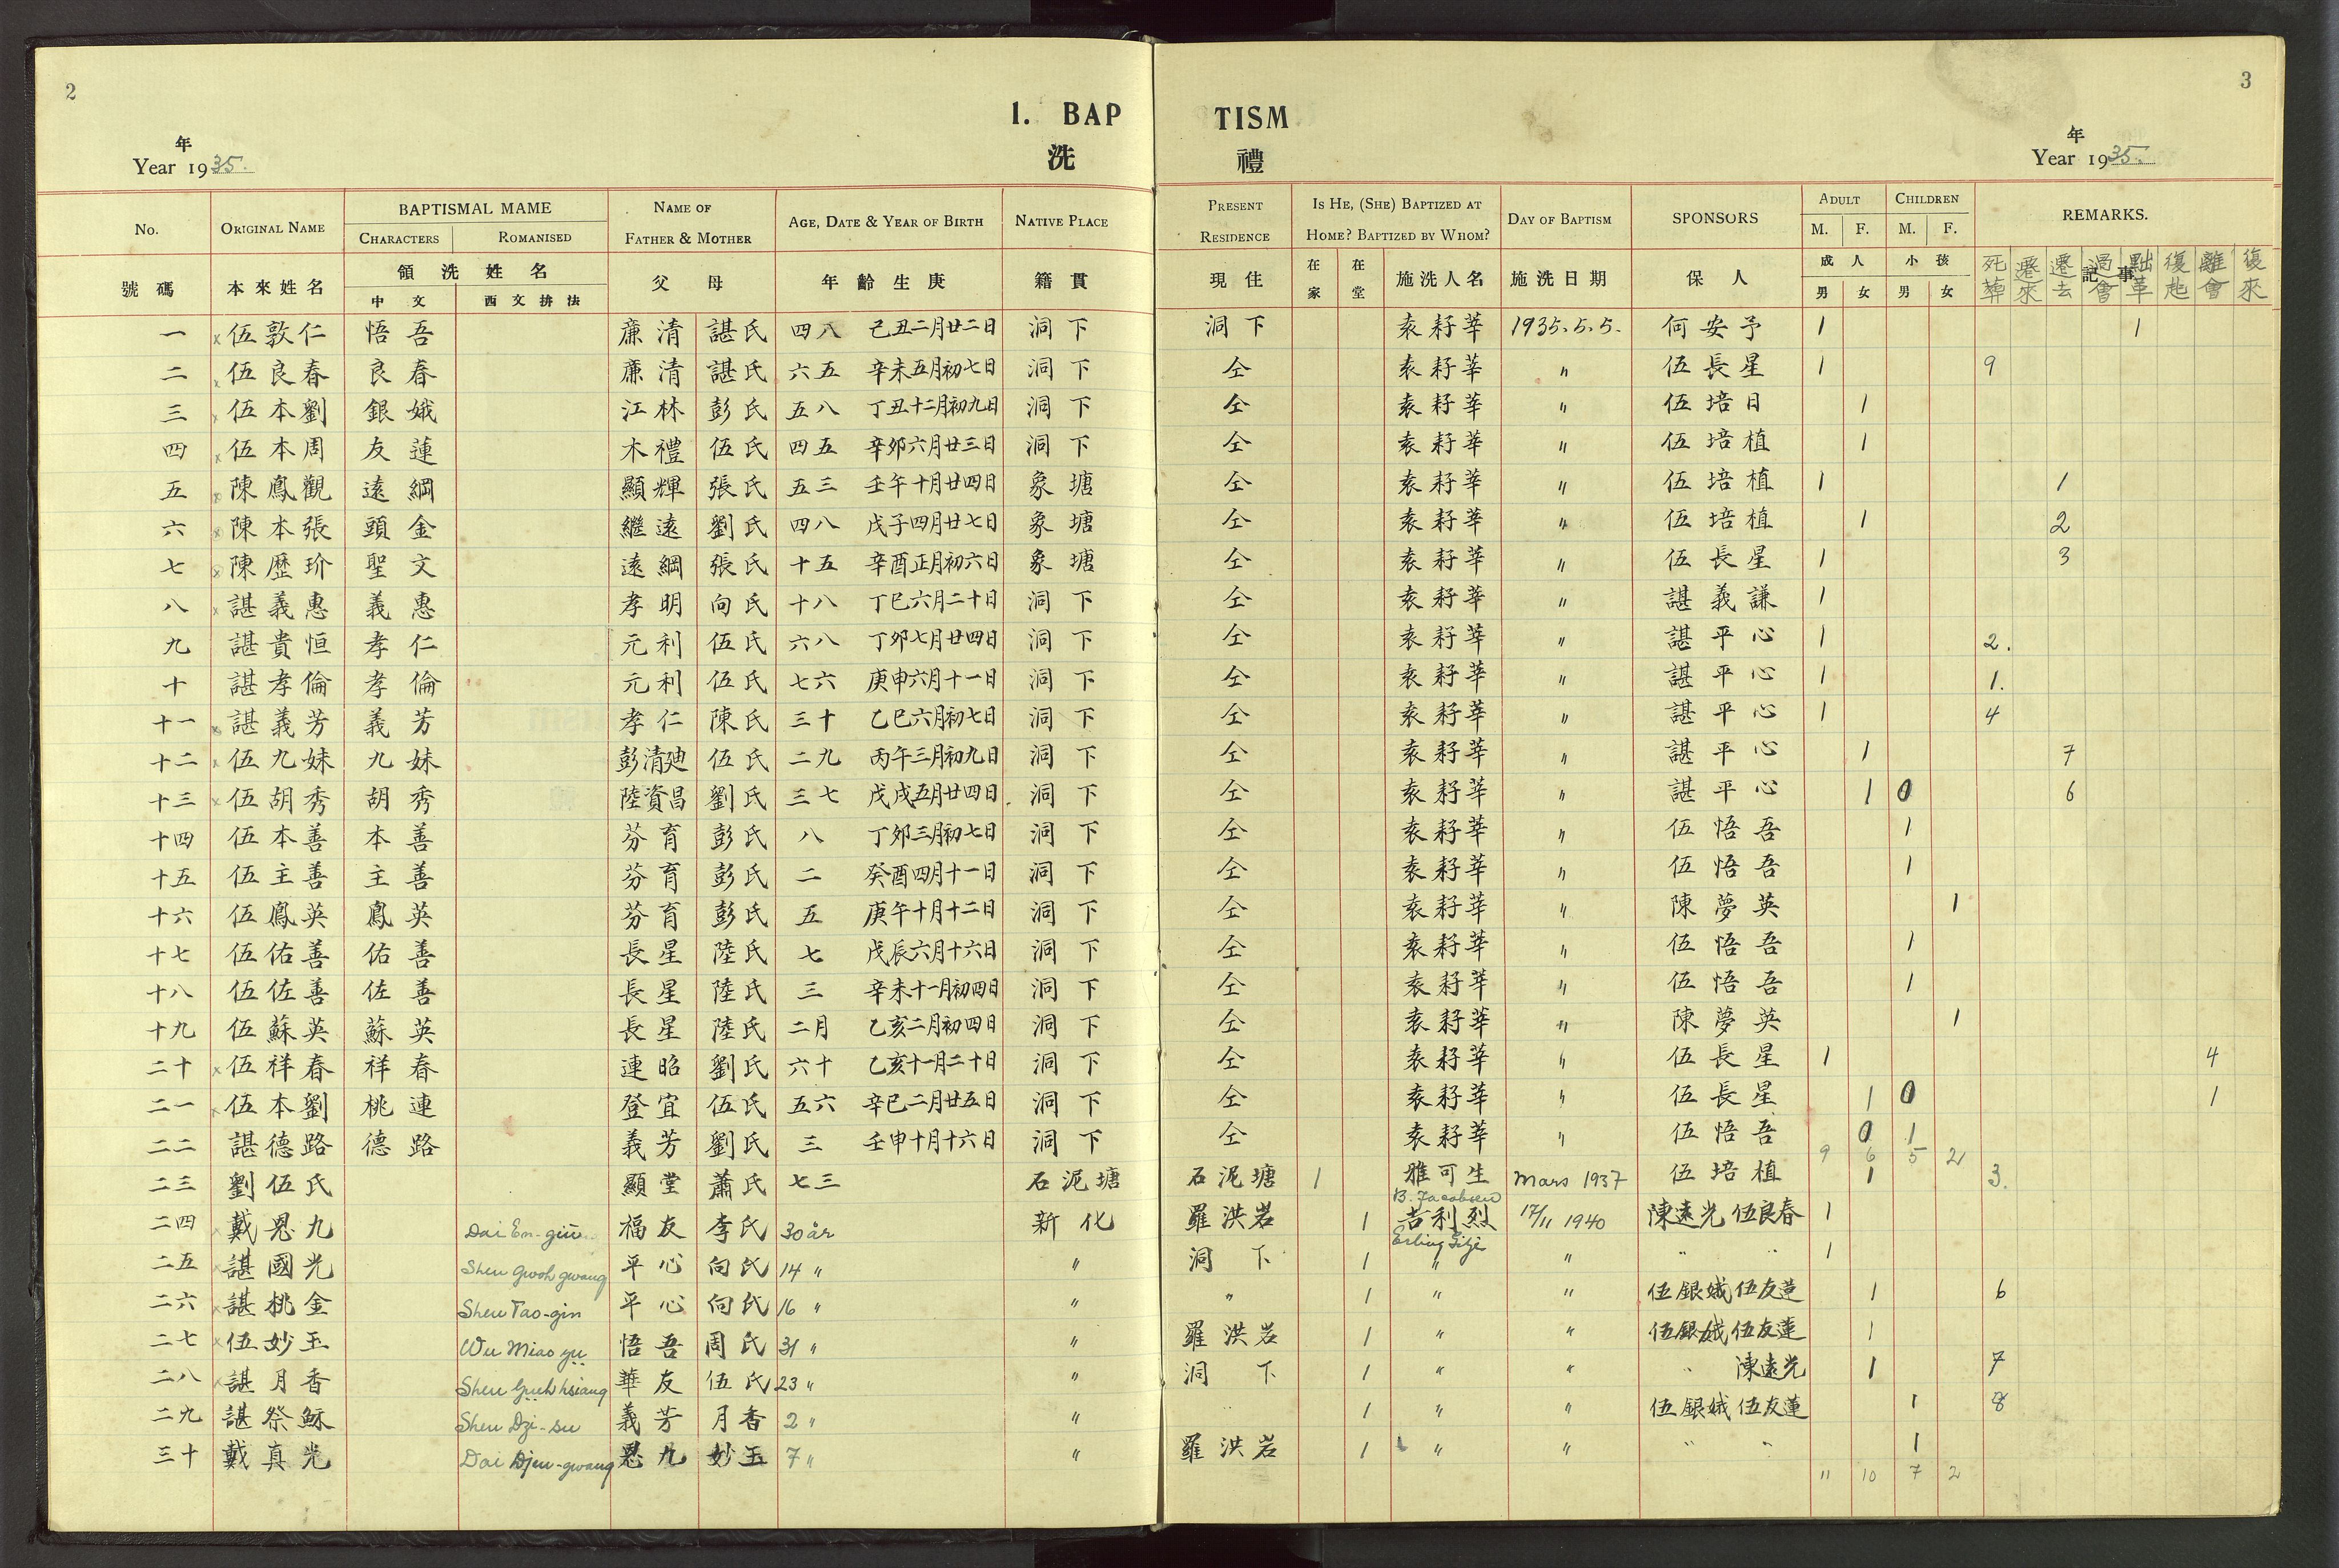 2
3
1. BAP TISM
洗 禮
年
Year 1935.
年
Year 1935.
No. ORIGINAL NAME BAPTISMAL MAME NAME OF FATHER & MOTHER AGE, DATE & YEAR OF BIRTH NATIVE PLACE PRESENT RESIDENCE IS HE, (SHE) BAPTIZED AT HOME? BAPTIZED BY WHOM? DAY OF BAPTISM SPONSORS ADULT CHILDREN REMARKS.
CHARACTERS ROMANISED M. F. M. F.
號碼 本來姓名 領洗姓名 父母 年齡生庚 籍貫 現住 在家 在堂 施洗人名 施洗日期 保人 成人 小孩 記事
中文 西文拚法 男 女 男 女 死葬 遷來 遷去 過會 黜革 復起 離會 復來
一 x 伍敦仁 悟吾 廉清 諶氏 四八 己丑二月廿二日 洞下 洞下 袁耔莘 1935.5.5. 何安予 1 1
二 x 伍良春 良春 廉清 諶氏 六五 辛未五月初七日 洞下 仝 袁耔莘 〃 伍長星 1 9
三 x 伍本劉 銀娥 江林 彭氏 五八 丁丑十二月初九日 洞下 仝 袁耔莘 〃 伍培日 1
四 x 伍本周 友蓮 木禮 伍氏 四五 辛卯六月廿三日 洞下 仝 袁耔莘 〃 伍培植 1
五 x 陳鳳觀 遠綱 顯輝 張氏 五三 壬午十月廿四日 象塘 仝 袁耔莘 〃 伍培植 1 1
六 x 陳本張 頭金 繼遠 劉氏 四八 戊子四月廿七日 象塘 仝 袁耔莘 〃 伍培植 1 2
七 x 陳歷玠 聖文 遠綱 張氏 十五 辛酉正月初六日 象塘 仝 袁耔莘 〃 伍長星 1 3
八 x 諶義惠 義惠 孝明 向氏 十八 丁巳六月二十日 洞下 仝 袁耔莘 〃 諶義謙 1
九 諶貴恒 孝仁 元利 伍氏 六八 丁卯七月廿四日 洞下 仝 袁耔莘 〃 諶平心 1 2.
十 諶孝倫 孝倫 元利 伍氏 七六 庚申六月十一日 洞下 仝 袁耔莘 〃 諶平心 1 1.
十一 x 諶義芳 義芳 孝仁 陳氏 三十 乙巳六月初七日 洞下 仝 袁耔莘 〃 諶平心 1 4
十二 x 伍九妹 九妹 彭清廸 伍氏 二九 丙午三月初九日 洞下 仝 袁耔莘 〃 諶平心 1 7
十三 x 伍胡秀 胡秀 陸資昌 劉氏 三七 戊戌五月廿四日 洞下 仝 袁耔莘 〃 諶平心 1 0 6
十四 伍本善 本善 芬育 彭氏 八 丁卯三月初七日 洞下 仝 袁耔莘 〃 伍悟吾 1
十五 伍主善 主善 芬育 彭氏 二 癸酉四月十一日 洞下 仝 袁耔莘 〃 伍悟吾 1
十六 伍鳳英 鳳英 芬育 彭氏 五 庚午十月十二日 洞下 仝 袁耔莘 〃 陳夢英 1
十七 伍佑善 佑善 長星 陸氏 七 戊辰六月十六日 洞下 仝 袁耔莘 〃 伍悟吾 1
十八 伍佐善 佐善 長星 陸氏 三 辛未十一月初四日 洞下 仝 袁耔莘 〃 伍悟吾 1
十九 伍蘇英 蘇英 長星 陸氏 二月 乙亥二月初四日 洞下 仝 袁耔莘 〃 陳夢英 1
二十 x 伍祥春 祥春 連昭 劉氏 六十 乙亥十一月二十日 洞下 仝 袁耔莘 〃 伍長星 1 4
二一 x 伍本劉 桃連 登宜 伍氏 五六 辛巳二月廿五日 洞下 仝 袁耔莘 〃 伍長星 1 0 1
二二 諶德路 德路 義芳 劉氏 三 壬申十月十六日 洞下 仝 袁耔莘 〃 伍悟吾 0 1
9 6 5 2
二三 劉伍氏 顯堂 蕭氏 七三 石泥塘 石泥塘 1 雅可生 Mars 1937 伍培植 1 3.
B. Jacobsen
二四 x 戴恩九 Dai En-giu 福友 李氏 30 år 新化 羅洪岩 1 吉利烈 17/11 1940 陳遠光 伍良春 1
Erling
二五 x 諶國光 Shen Gwoh gwang 平心 向氏 14 〃 〃 洞下 1 〃 〃 〃 〃 1
二六 x 諶桃金 Shen Tao-gin 平心 向氏 16 〃 〃 〃 1 〃 〃 伍銀娥 伍友蓮 1 6
二七 x 伍妙玉 Wu Miao yu 悟吾 周氏 31 〃 〃 羅洪岩 1 〃 〃 伍銀娥 伍友蓮 1
二八 x 諶月香 Shen Yueh hsiang 華友 伍氏 23 〃 〃 洞下 1 〃 〃 〃 陳遠光 1 7
二九 諶祭穌 Shen Dzi-su 義芳 月香 2 〃 〃 〃 1 〃 〃 伍銀娥 伍友蓮 1 8
三十 戴真光 Dai Djen-gwang 恩九 妙玉 7 〃 〃 羅洪岩 1 〃 〃 〃 〃 1
11 10 7 2